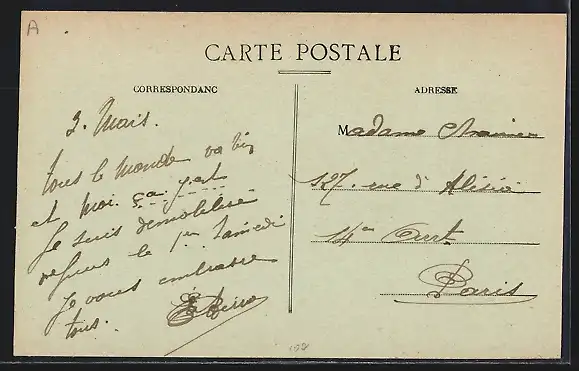 A
CARTE POSTALE
CORRESPONDANC
ADRESSE
3. Mars.
Tous le monde va bien
et moi ça y est
Je suis démobilisé
depuis le 1er Samedi
Je vous embrasse
tous.
Madame
127. rue d'Alésia
14em Arrt.
Paris